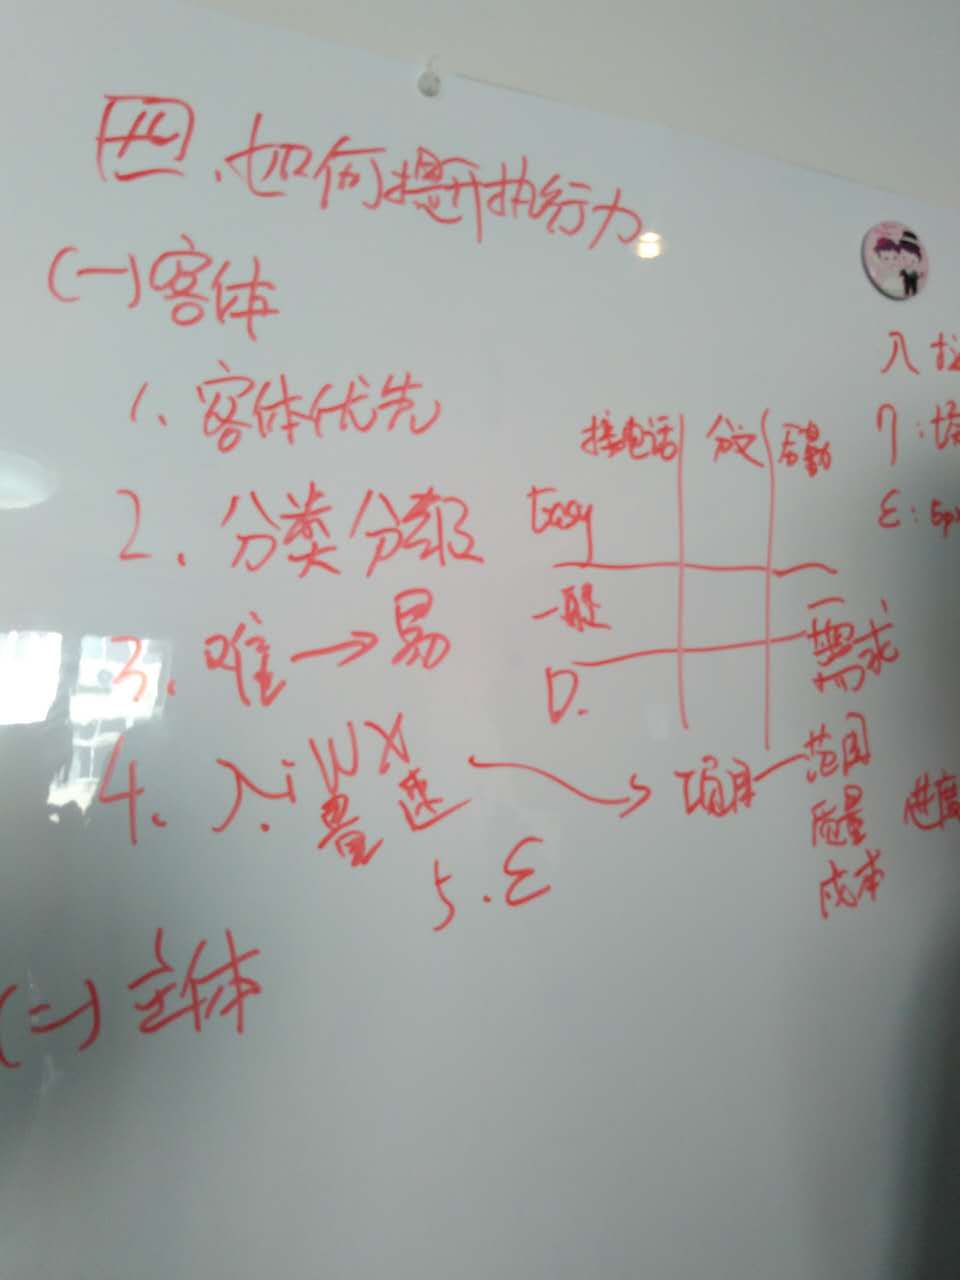 四、如何提升执行力
(一)客体
1、客体优先
2、分类分级
3、难→易
4、入i W X
量 速
5.ε
(二)主体
接电话 分文 后勤
Easy
一般
D.
项目—范围
需求
质量 进度
成本
入
η:
ε: